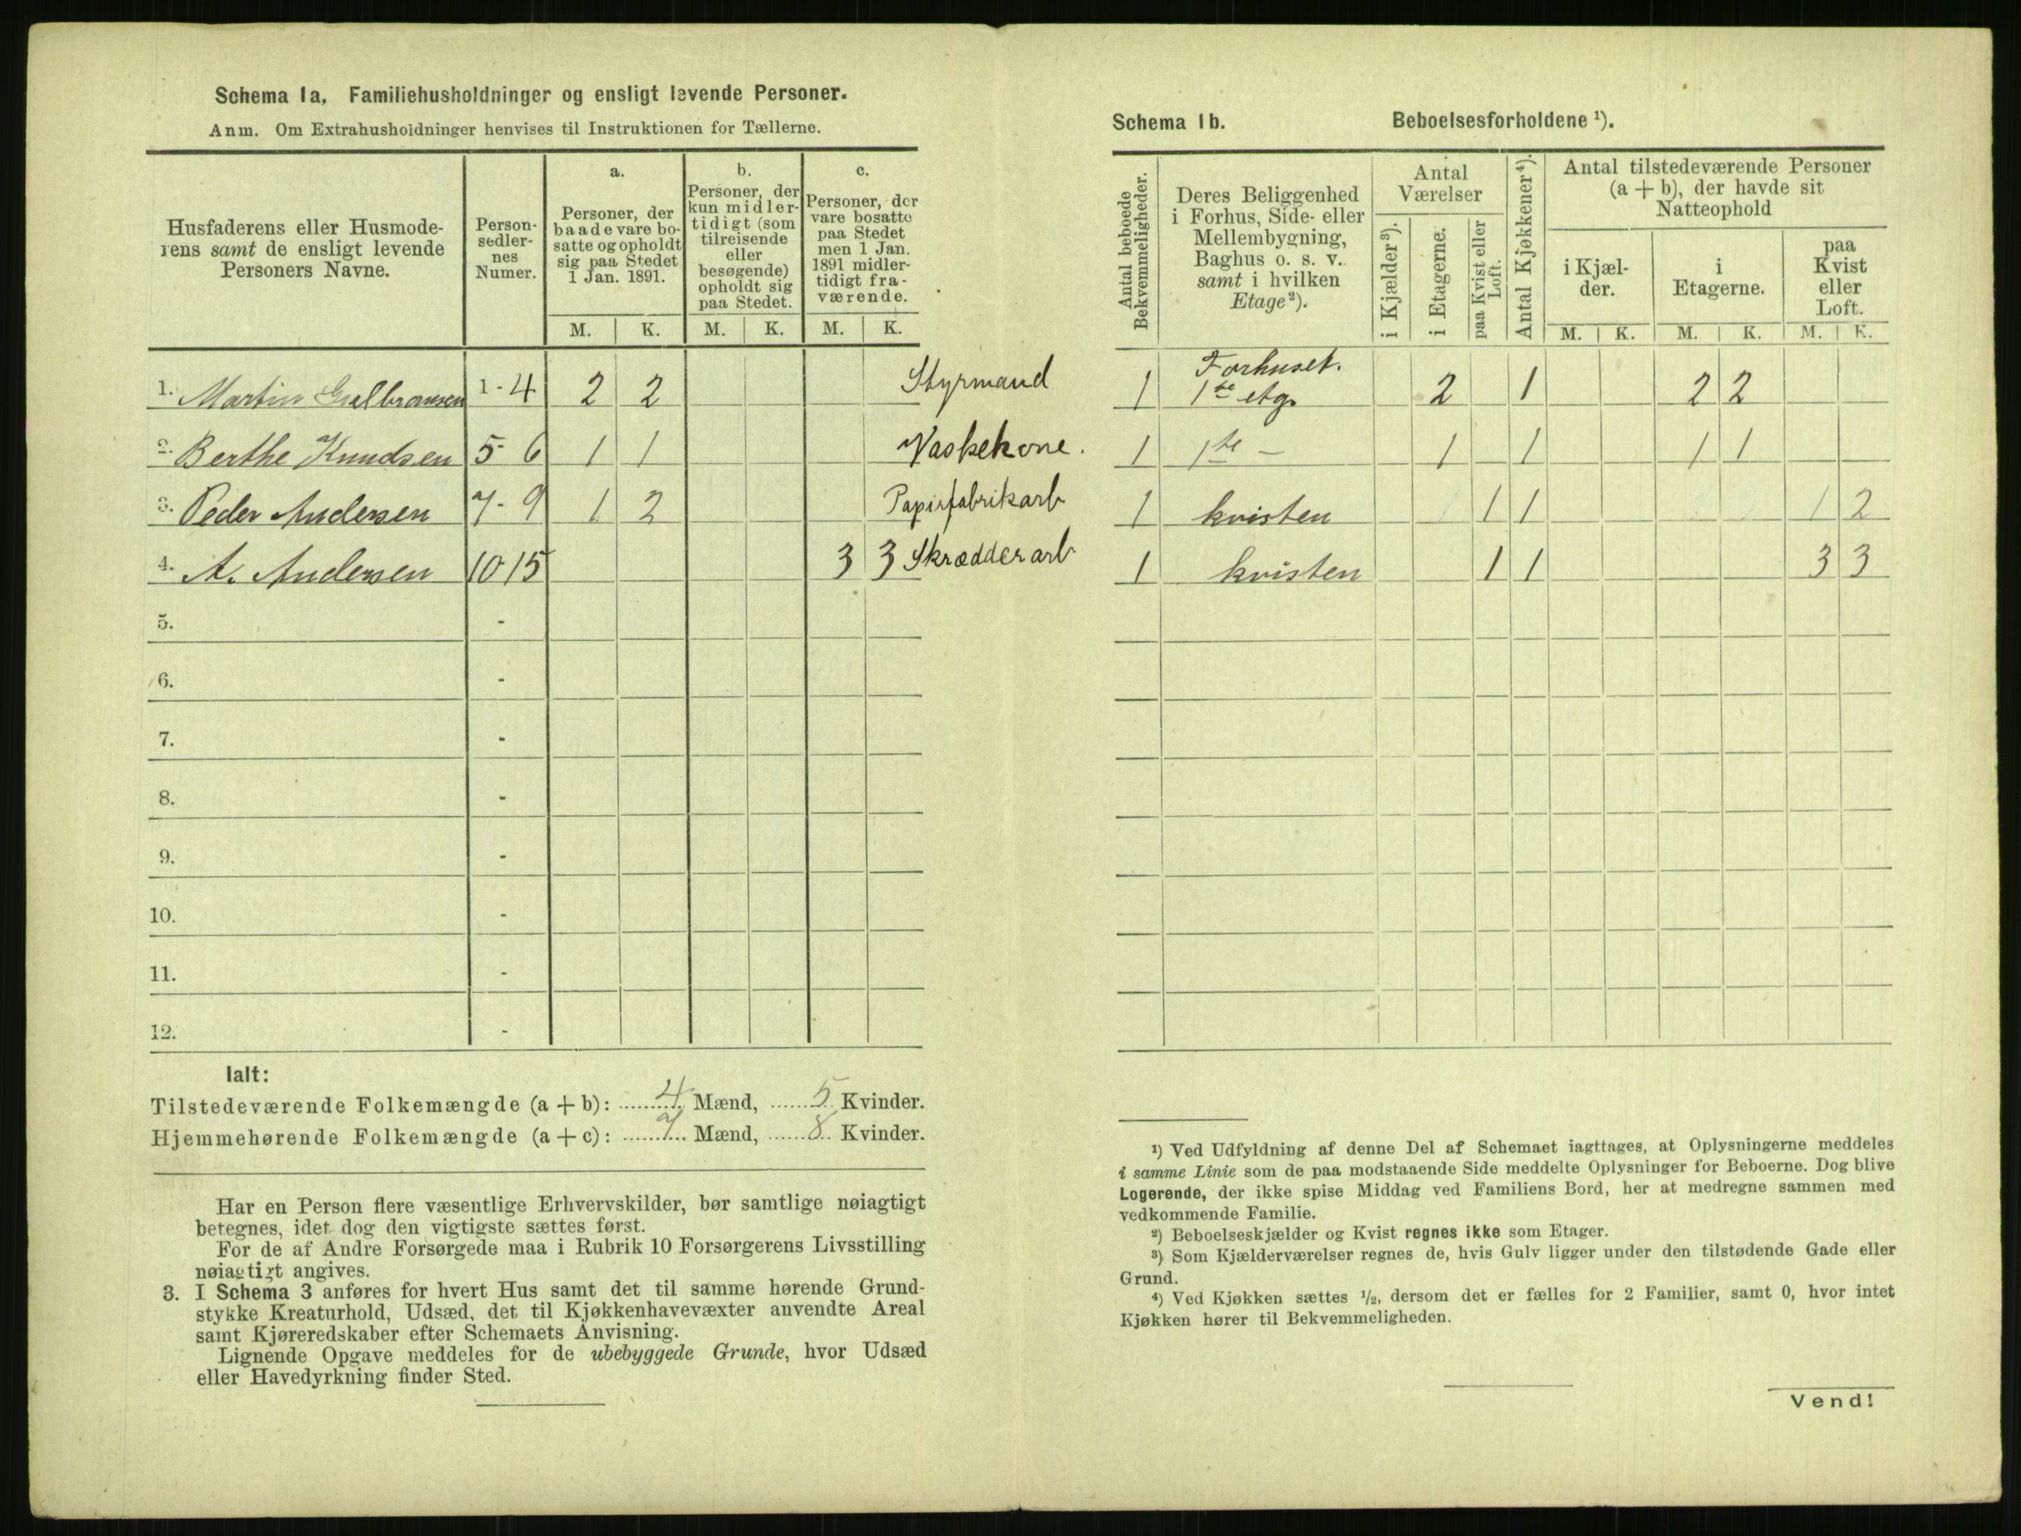 Schema 1a, Familiehusholdninger og ensligt levende Personer.
Anm. Om Extrahusholdninger henvises til Instruktionen for Tællerne.
Husfaderens eller Husmode-
rens samt de ensligt levende
Personers Navne.
Person-
sedler-
nes
Numer.
a.
Personer, der
baade vare bo-
satte og opholdt
sig paa Stedet
1 Jan. 1891.
b.
Personer, der
kun midler-
tidigt (som
tilreisende
eller
besøgende)
opholdt sig
paa Stedet.
c.
Personer, der
vare bosatte
paa Stedet
men 1 Jan.
1891 midler-
tidigt fra-
værende.
M. K. M. K. M. K.
1. Martin Gulbransen 1-4 2 2 Styrmand
2. Berthe Knudsen 5-6 1 1 Vaskekone.
3. Peder Andersen 7-9 1 2 Papirfabrikarb
4. A. Andersen 10 15 3 3 Skrædderarb
5. -
6. -
7. -
8. -
9. -
10. -
11. -
12. -
Ialt:
Tilstedeværende Folkemængde (a + b): 4 Mænd, 5 Kvinder.
Hjemmehørende Folkemængde (a + c): 7 Mænd, 8 Kvinder.
Har en Person flere væsentlige Erhvervskilder, bør samtlige nøiagtigt
betegnes, idet dog den vigtigste sættes først.
For de af Andre Forsørgede maa i Rubrik 10 Forsørgerens Livsstilling
nøiagtigt angives.
3. I Schema 3 anføres for hvert Hus samt det til samme hørende Grund-
stykke Kreaturhold, Udsæd, det til Kjøkkenhavevæxter anvendte Areal
samt Kjøreredskaber efter Schemaets Anvisning.
Lignende Opgave meddeles for de ubebyggede Grunde, hvor Udsæd
eller Havedyrkning finder Sted.
Schema 1b. Beboelsesforholdene ¹).
Antal beboede
Bekvemmeligheder.
Deres Beliggenhed
i Forhus, Side- eller
Mellembygning,
Baghus o. s. v.
samt i hvilken
Etage²).
Antal
Værelser
i Kjælder³).
i Etagerne.
paa Kvist eller
Loft.
Antal Kjøkkener⁴).
Antal tilstedeværende Personer
(a + b), der havde sit
Natteophold
i Kjæl-
der.
i
Etagerne.
paa
Kvist
eller
Loft.
M. K. M. K. M. K.
Forhuset.
1 1ste etg. 2 1 2 2
1 1ste — 1 1 1 1
1 kvisten 1 1 1 2
1 kvisten 1 1 3 3
¹) Ved Udfyldning af denne Del af Schemaet iagttages, at Oplysningerne meddeles
i samme Linie som de paa modstaaende Side meddelte Oplysninger for Beboerne. Dog blive
Logerende, der ikke spise Middag ved Familiens Bord, her at medregne sammen med
vedkommende Familie.
²) Beboelseskjælder og Kvist regnes ikke som Etager.
³) Som Kjælderværelser regnes de, hvis Gulv ligger under den tilstødende Gade eller
Grund.
⁴) Ved Kjøkken sættes ½, dersom det er fælles for 2 Familier, samt 0, hvor intet
Kjøkken hører til Bekvemmeligheden.
Vend!